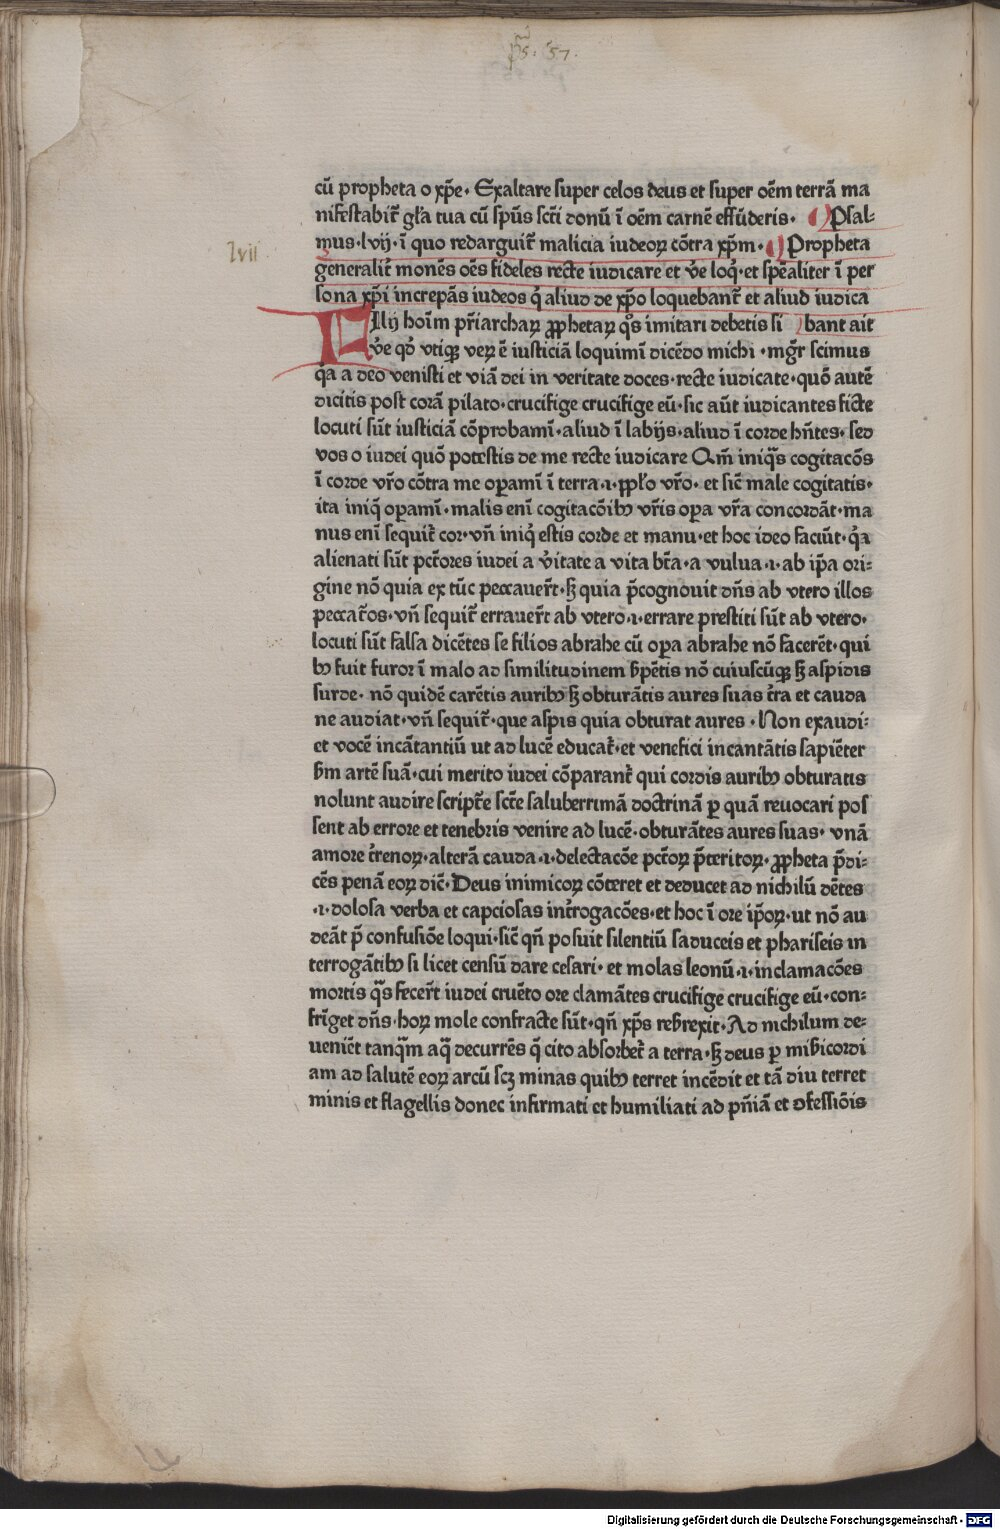 p̄s. 57.
cū propheta o xp̄e. Exaltare super celos deus et super oēm terrā ma
nifestabit᷑ gl̄a tua cū sp̄us sct̄i donū ī oēm carnē effūderis. ¶ Psal-
mus. lvij. ī quo redarguit᷑ malicia iudeoꝝ cōtra xp̄m. ¶ Propheta
lvii
generalit᷑ monēs oēs fideles recte iudicare et v̄e loq̄. et sp̄ealiter ī per
sona xp̄i increpās iudeos q̄ aliud de xp̄o loquebant᷑ et aliud iudica
FIlij hoīm pr̄iarchaꝝ ꝓphetaꝝ q̄s imitari debetis si bant ait
v̄e qd̄ vtiqꝫ veꝝ ē iusticiā loquimī dicēdo michi. mgr̄ scimus
q̄a a deo venisti et viā dei in veritate doces. recte iudicate. quō autē
dicitis post corā pilato. crucifige crucifige eū. sic aūt iudicantes ficte
locuti sūt iusticiā cōprobamī. aliud ī labijs. aliud ī corde hn̄tes. sed
vos o iudei quō potestis de me recte iudicare Qm̄ iniq̄s cogitacōs
ī corde vr̄o cōtra me oꝑamī ī terra .i. ꝓpl̄o vr̄o. et sic̄ male cogitatis.
ita iniq̄ oꝑamī. malis enī cogitacōibꝫ vr̄is oꝑa vr̄a concordāt. ma
nus enī sequit᷑ cor. vn̄ iniq̄ estis corde et manu. et hoc ideo faciūt. q̄a
alienati sūt pct̄ores iudei a v̄itate a vita bt̄a. a vulua .i. ab ip̄a ori-
gine nō quia ex tūc peccauer̄t. sꝫ quia p̄cognouit dn̄s ab vtero illos
peccat᷑os. vn̄ sequit᷑ errauer̄t ab vtero .i. errare prestiti sūt ab vtero.
locuti sūt falsa dicētes se filios abrahe cū oꝑa abrahe nō facerēt. qui
bꝫ fuit furor ī malo ad similitudinem s̄pētis nō cuiuscūqꝫ sꝫ aspidis
surde. nō quidē carētis auribꝫ sꝫ obturātis aures suas t᷑ra et cauda
ne audiat. vn̄ sequit᷑. que aspis quia obturat aures. Non exaudi-
et vocē incātantiū ut ad lucē educat᷑. et venefici incantātis sapiēter
s̄m artē suā. cui merito iudei cōparant᷑ qui cordis auribꝫ obturatis
nolunt audire script᷑e sct̄e saluberrimā doctrinā ꝑ quā reuocari pos
sent ab errore et tenebris venire ad lucē. obturātes aures suas. vnā
amore t᷑renoꝝ. alterā cauda .i. delectacōe pct̄oꝝ p̄teritoꝝ. ꝓpheta p̄di-
cēs penā eoꝝ dic̄. Deus inimicoꝝ cōteret et deducet ad nichilū dētes
.i. dolosa verba et capciosas int᷑rogacōes. et hoc ī ore ip̄oꝝ. ut nō au
deāt p̄ confusiōe loqui. sic̄ qn̄ posuit silentiū saduceis et phariseis in
terrogātibꝫ si licet censū dare cesari. et molas leonū .i. inclamacōes
mortis q̄s fecer̄t iudei cruēto ore clamātes crucifige crucifige eū. con-
fringet dn̄s. hoꝝ mole confracte sūt. qn̄ xp̄s res̄rexit. Ad nichilum de-
uenient tanq̄m aq̄ decurrēs q̄ cito absorbet᷑ a terra. sꝫ deus ꝑ mis̄icordi
am ad salutē eoꝝ arcū scꝫ minas quibꝫ terret incēdit et tā diu terret
minis et flagellis donec infirmati et humiliati ad pn̄iā et ꝯfessiōis
Digitalisierung gefördert durch die Deutsche Forschungsgemeinschaft - DFG